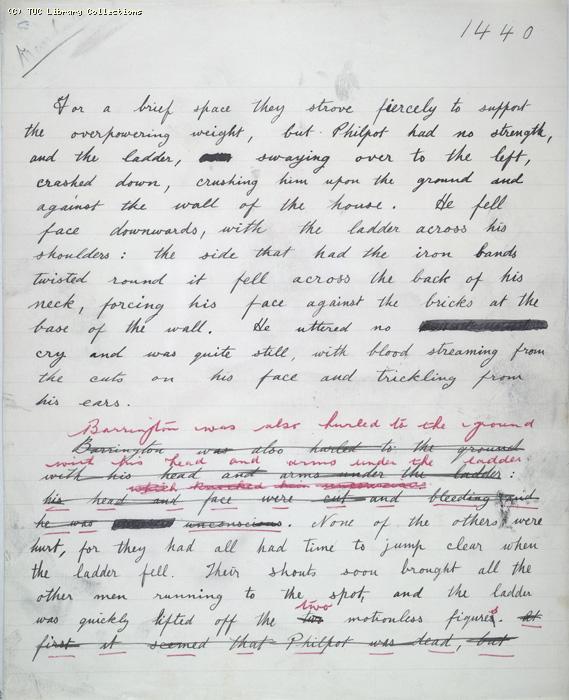 (C) TUC Library Collections
1440
For a brief space they strove fiercely to support
the overpowering weight, but Philpot had no strength,
and the ladder, swaying over to the left,
crashed down, crushing him upon the ground and
against the wall of the house. He fell
face downwards, with the ladder across his
shoulders: the side that had the iron bands
twisted round it fell across the back of his
neck, forcing his face against the bricks at the
base of the wall. He uttered no
cry and was quite still, with blood streaming from
the cuts on his face and trickling from
his ears.
Barrington was also hurled to the ground
Barrington was also hurled to the ground
with his head and arms under the ladder
with his head and arms under the ladder:
which knocked him
his head and face were cut and bleeding and
he was unconscious. None of the others were
hurt, for they had all had time to jump clear when
the ladder fell. Their shouts soon brought all the
other men running to the spot, and the ladder
two
was quickly lifted off the two motionless figures. At
first it seemed that Philpot was dead, but